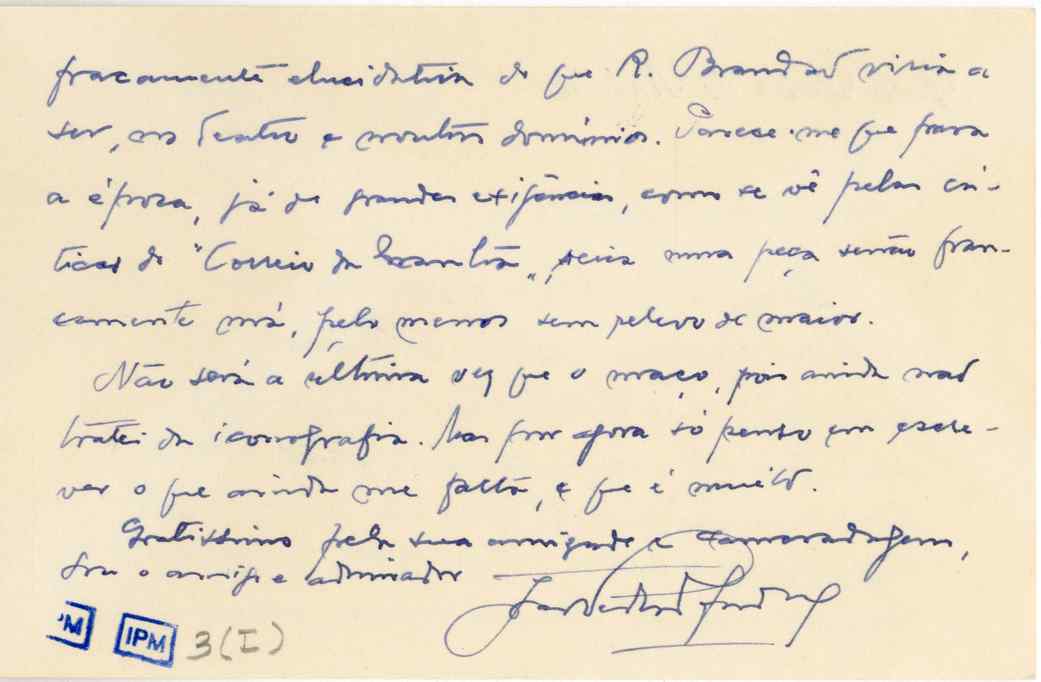 fracamente elucidativa do que R. Brandão viria a
ser, no Teatro e noutros domínios. Parece-me que para
a época, já de grandes exigências, como se vê pelas crí-
ticas do "Correio da Manhã", seria uma peça senão fran-
camente má, pelo menos sem relevo de maior.
Não será a última vez que o maço, pois ainda não
tratei da iconografia. Mas por agora só penso em escre-
ver o que ainda me falta, e que é muito.
Gratíssimo pela sua amizade e camaradagem,
Seu o amigo e admirador
IPM 3(I)